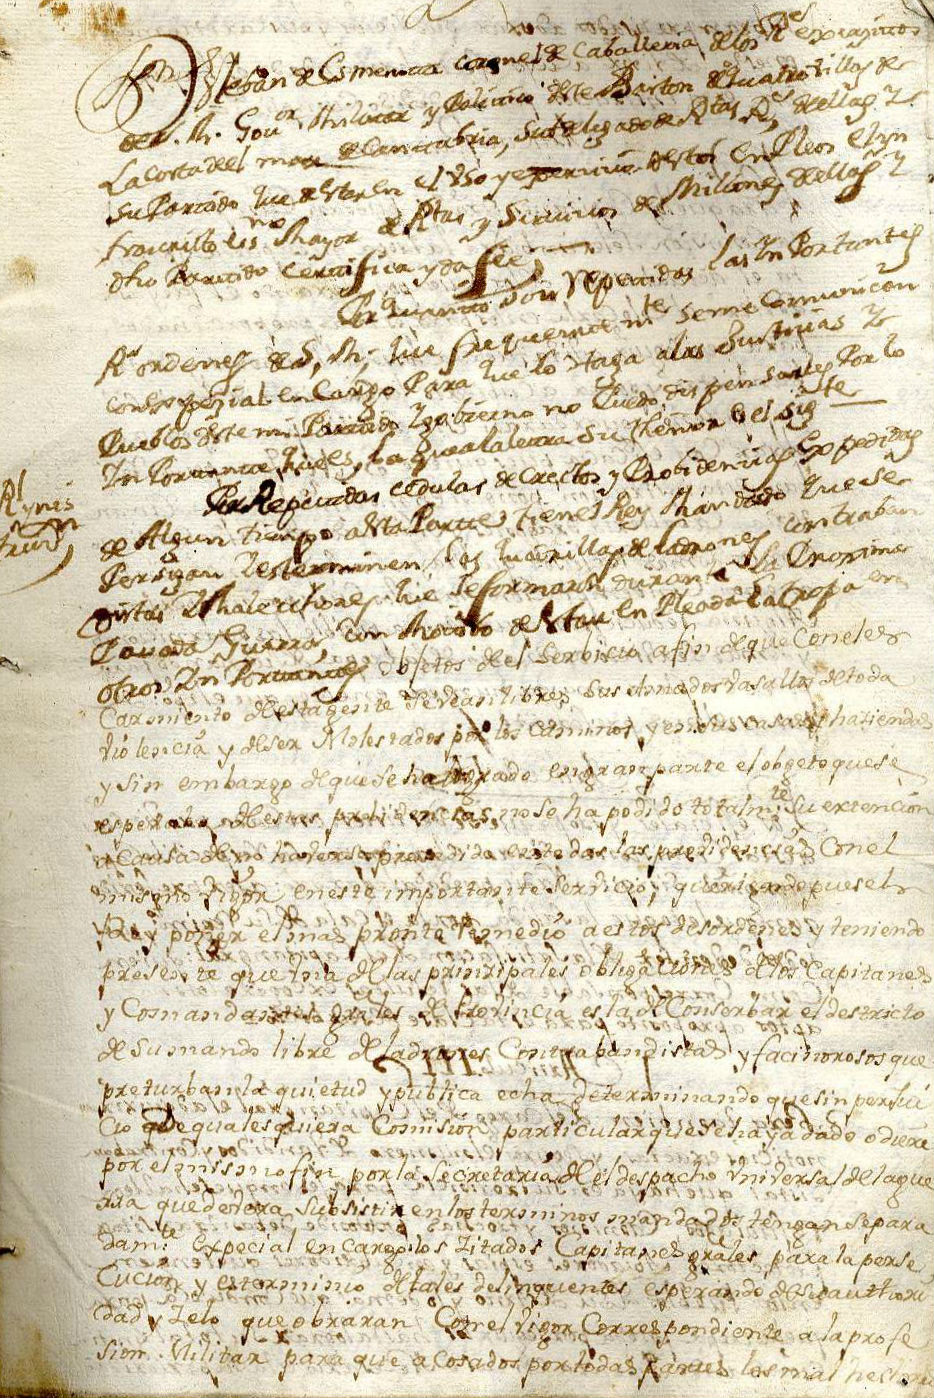 Dn Esteban de Esmenota coronel de Caballeria, de los Rs exercitos
de S. M. Govor Militar y Politico de este Baston de quatro villas de
La costa del mar de Cantabria, Subdelegado de Rtas Rs de ellas y
su Partido que de estar en el Uso y exercicio de estos Empleos el ynfra
escripto Essno Mayor de Rtas y Servicios de Millones de ellas y
dho Partido Certifica y da fee
Por Quanto son repetidas las Ynportantes
Rs ordenes de S. M. que frequentemte se me Comunican
con espezial encargo Para que lo Haga a las Justicias y
Pueblos de este mi Partido y gobierno no Puedo dispensarles Por lo
Ynportante que es, la qual a la letra su thenor es el sigte
Rl Ynstruon
Por Repetidas cedulas decretos y Probidencias Expedidas
de Algun tiempo a esta Parte tiene el Rey Mandado que se
Persigan y esterminen las quadrillas de ladrones contraban
distas y Malechores que se formaron durante la Proxima
Pasada Guerra, con Motibo de estar en Pleada la tropa en
otros Ynportantes objetos de el Serbicio a fin de que con el es
Carmiento de esta gente se vean libres sus Amados vasallos de toda
violencia y de ser Molestados por los Caminos, y en sus casas y haziendas
y sin embargo de que se ha logrado en gran parte el obgeto que se
esperaba de estas probidencias, no se ha podido totalmte su extencion
a Causa de no haverse prozedido en todas las probidencias Con el
mismo Vigor en este importante Servicio; queriendo pues el
Rey poner el mas pronto Remedio a estos desordenes y teniendo
presente que una de las prinzipales obligaciones de los Capitanes
y Comandantes grales de Provincia es la de Conserbar el destricto
de su mando libre de ladrones Contrabandistas y facinorosos que
preturban la quietud y publica echa determinando que sin perjui
cio de qualesquiera Comision particular que se haya dado o diere
por el mismo fin por la Secretaria de el despacho Universal de la gue
rra que devera Subsistir en los terminos mandados tengan separa
damte Expecial encargo los Zitados Capitanes grales para la perse
Cucion y esterminio de tales delinquentes esperando de su authori
dad y Zelo que obraran Con el vigor Correspondiente a la profe
sion Militar para que acosados por todas partes los mal hechores